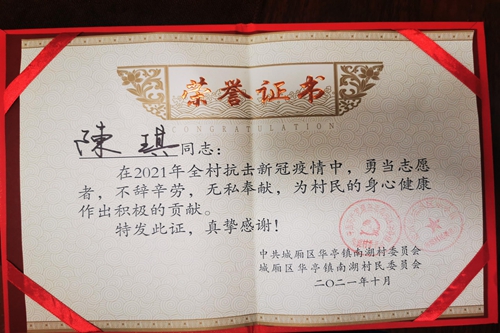 荣誉证书
CONGRATULATION
陳琪同志：
在2021年全村抗击新冠疫情中，勇当志愿
者，不辞辛劳，无私奉献，为村民的身心健康
作出积极的贡献。
特发此证，真挚感谢！
中共城厢区华亭镇南湖村委员会
城厢区华亭镇南湖村民委员会
二〇二一年十月